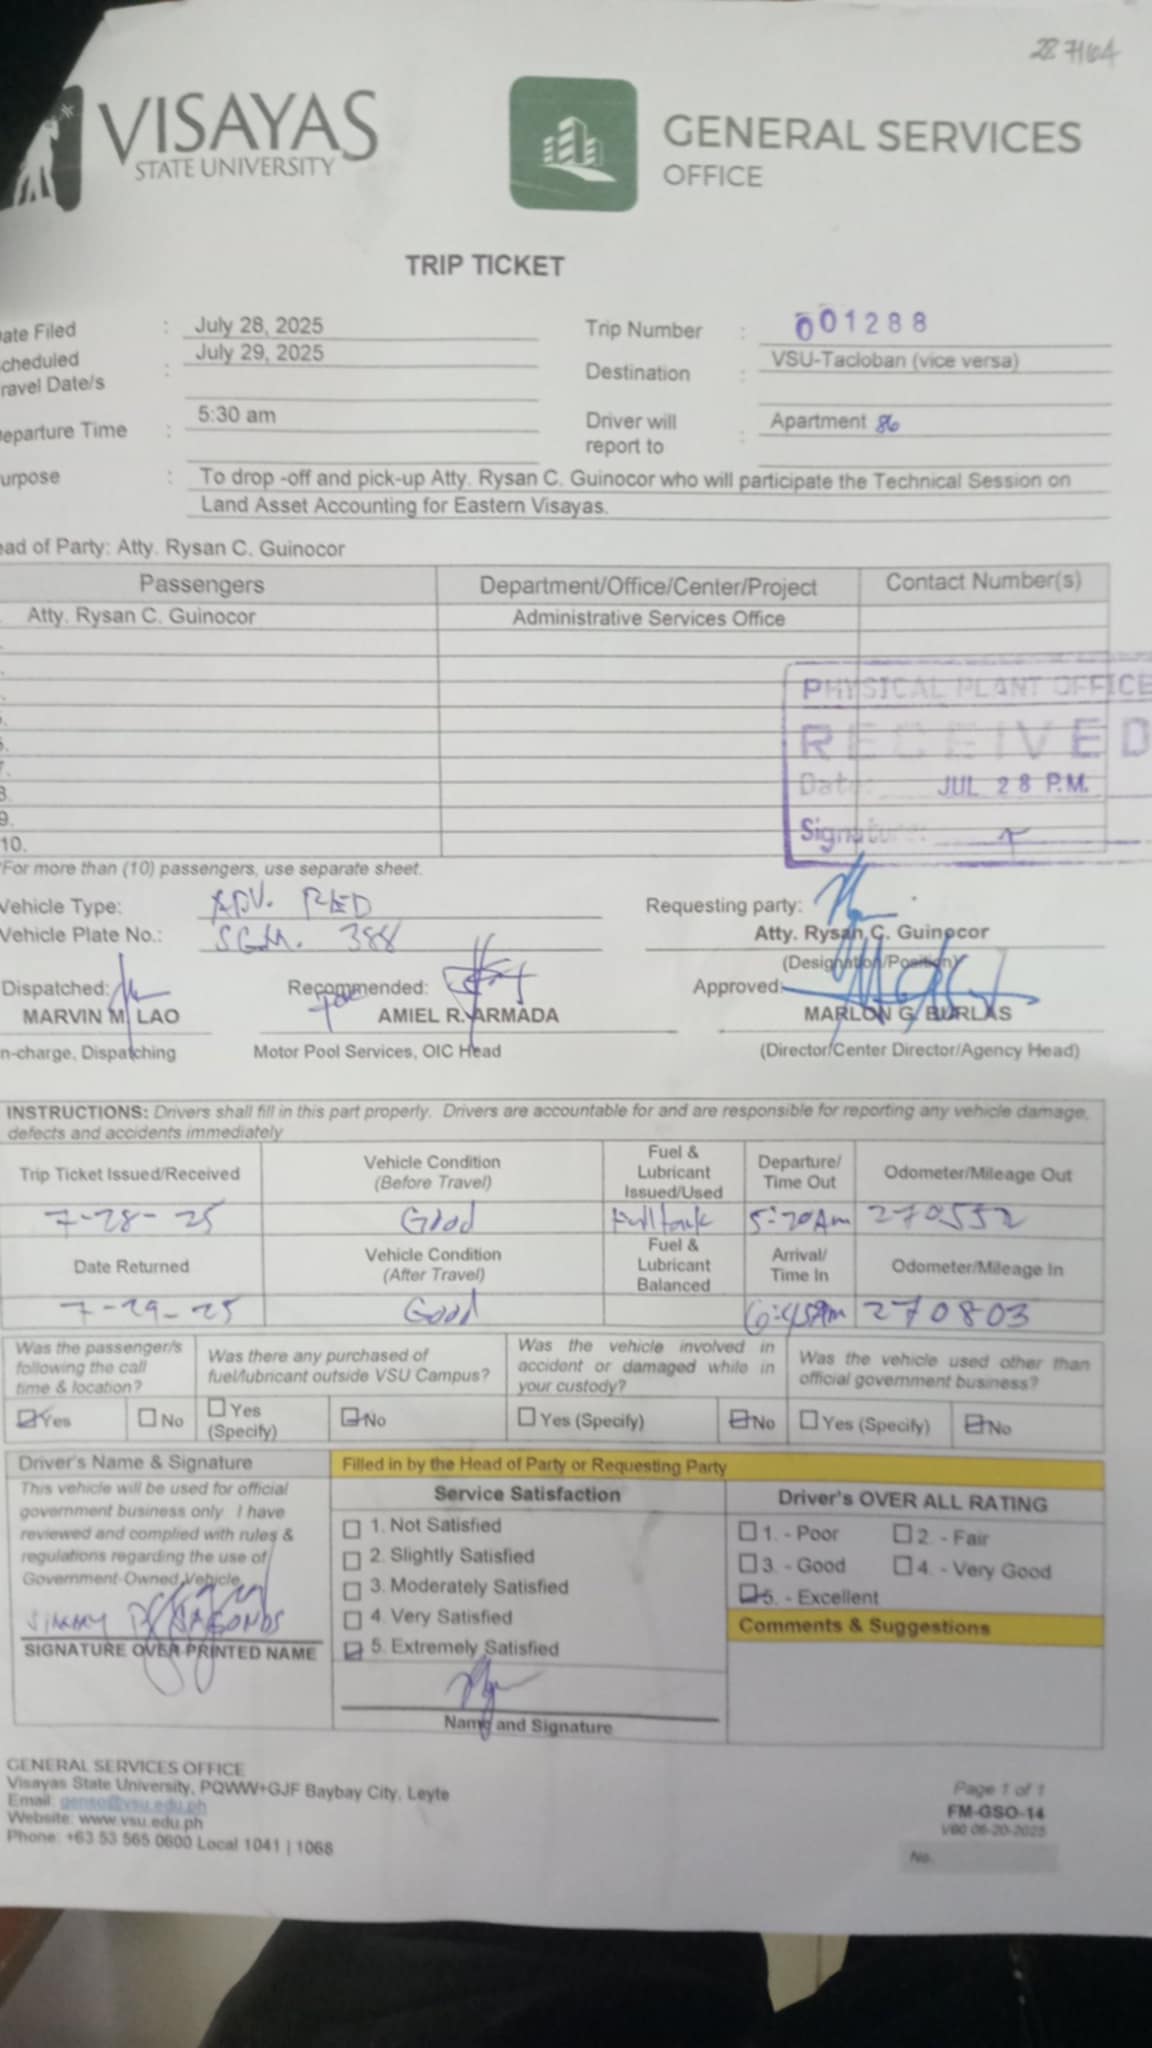 28 7164
VISAYAS
STATE UNIVERSITY
GENERAL SERVICES
OFFICE
TRIP TICKET
ate Filed : July 28, 2025
Trip Number : 001288
cheduled
ravel Date/s : July 29, 2025
Destination : VSU-Tacloban (vice versa)
eparture Time : 5:30 am
Driver will
report to : Apartment 86
urpose : To drop -off and pick-up Atty. Rysan C. Guinocor who will participate the Technical Session on
Land Asset Accounting for Eastern Visayas.
ead of Party: Atty. Rysan C. Guinocor
Passengers Department/Office/Center/Project Contact Number(s)
Atty. Rysan C. Guinocor Administrative Services Office
8.
9.
10.
PHYSICAL PLANT OFFICE
RECEIVED
Date: JUL 28 P.M.
Signature:
*For more than (10) passengers, use separate sheet.
Vehicle Type: ADV. RED
Vehicle Plate No.: SGM. 388
Requesting party:
Atty. Rysan C. Guinocor
(Designation/Position)
Dispatched: Recommended: Approved:
MARVIN M. LAO AMIEL R. ARMADA MARLON G. BURLAS
n-charge, Dispatching Motor Pool Services, OIC Head (Director/Center Director/Agency Head)
INSTRUCTIONS: Drivers shall fill in this part properly. Drivers are accountable for and are responsible for reporting any vehicle damage,
defects and accidents immediately
Trip Ticket Issued/Received Vehicle Condition (Before Travel) Fuel & Lubricant Issued/Used Departure/ Time Out Odometer/Mileage Out
7-28-25 Good Fulltank 5:20Am 270552
Date Returned Vehicle Condition (After Travel) Fuel & Lubricant Balanced Arrival/ Time In Odometer/Mileage In
7-29-25 Good 6:45Pm 270803
Was the passenger/s following the call time & location?
Was there any purchased of fuel/lubricant outside VSU Campus?
Was the vehicle involved in accident or damaged while in your custody?
Was the vehicle used other than official government business?
Yes No Yes (Specify) No Yes (Specify) No Yes (Specify) No
Driver's Name & Signature
This vehicle will be used for official
government business only I have
reviewed and complied with rules &
regulations regarding the use of
Government-Owned Vehicle
SIGNATURE OVER PRINTED NAME
Filled in by the Head of Party or Requesting Party
Service Satisfaction
1. Not Satisfied
2. Slightly Satisfied
3. Moderately Satisfied
4. Very Satisfied
5. Extremely Satisfied
Name and Signature
Driver's OVER ALL RATING
1. - Poor 2. - Fair
3. - Good 4. - Very Good
5. - Excellent
Comments & Suggestions
GENERAL SERVICES OFFICE
Visayas State University, PQWW+GJF Baybay City, Leyte
Email: genso@vsu.edu.ph
Website: www.vsu.edu.ph
Phone: +63 53 565 0600 Local 1041 | 1068
Page 1 of 1
FM-GSO-14
V60 06-20-2025
No.